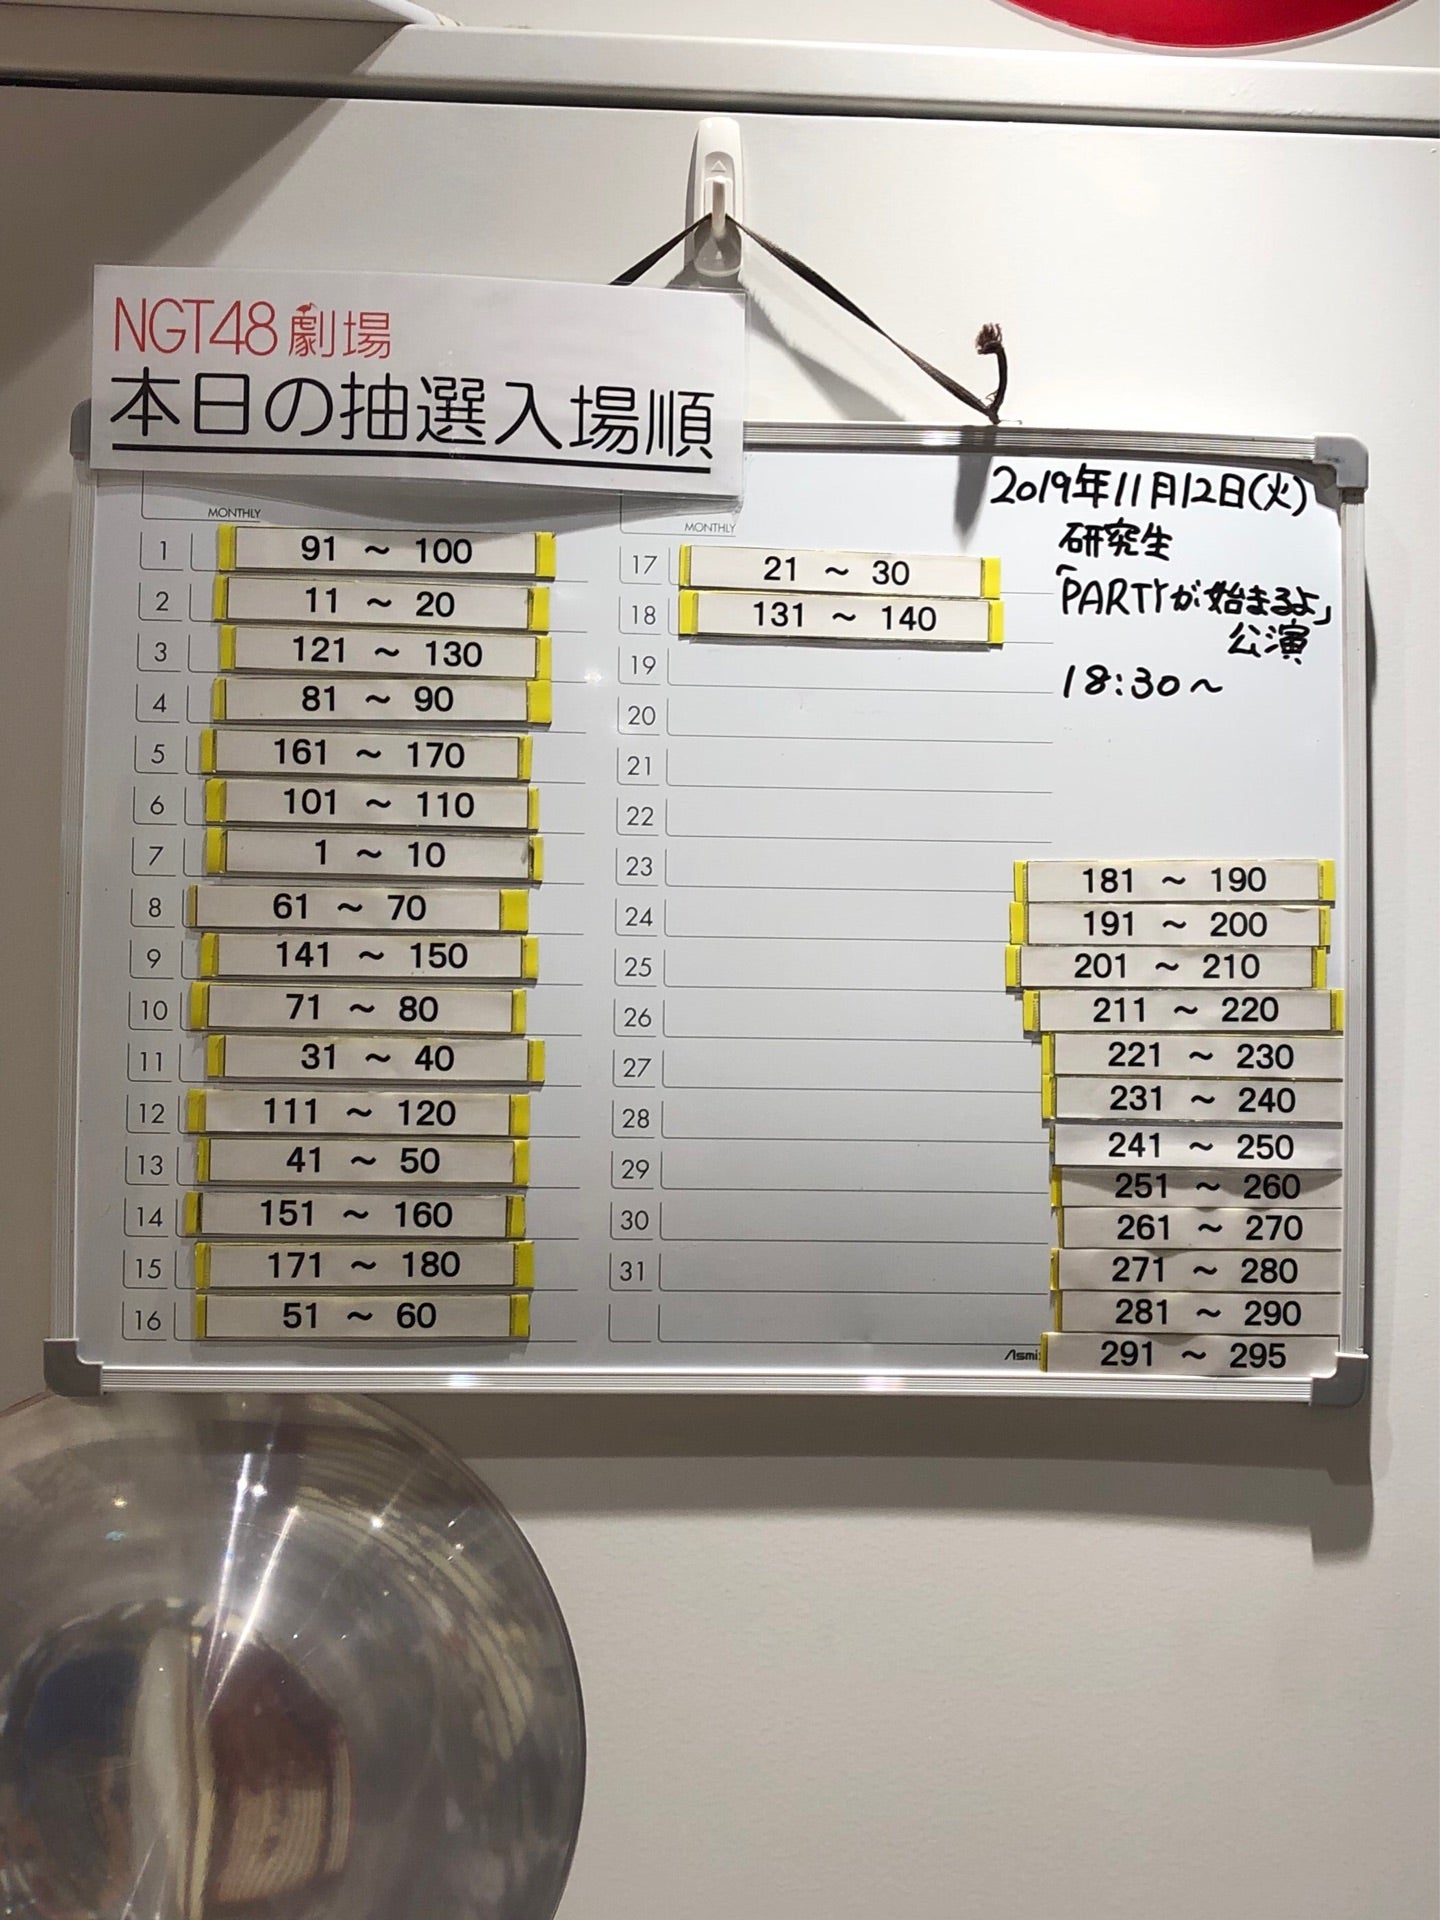 NGT48劇場
本日の抽選入場順
2019年11月12日(火)
研究生
「PARTYが始まるよ」
公演
18:30～
MONTHLY
1 91 ～ 100
2 11 ～ 20
3 121 ～ 130
4 81 ～ 90
5 161 ～ 170
6 101 ～ 110
7 1 ～ 10
8 61 ～ 70
9 141 ～ 150
10 71 ～ 80
11 31 ～ 40
12 111 ～ 120
13 41 ～ 50
14 151 ～ 160
15 171 ～ 180
16 51 ～ 60
MONTHLY
17 21 ～ 30
18 131 ～ 140
19
20
21
22
23
24
25
26
27
28
29
30
31
181 ～ 190
191 ～ 200
201 ～ 210
211 ～ 220
221 ～ 230
231 ～ 240
241 ～ 250
251 ～ 260
261 ～ 270
271 ～ 280
281 ～ 290
291 ～ 295